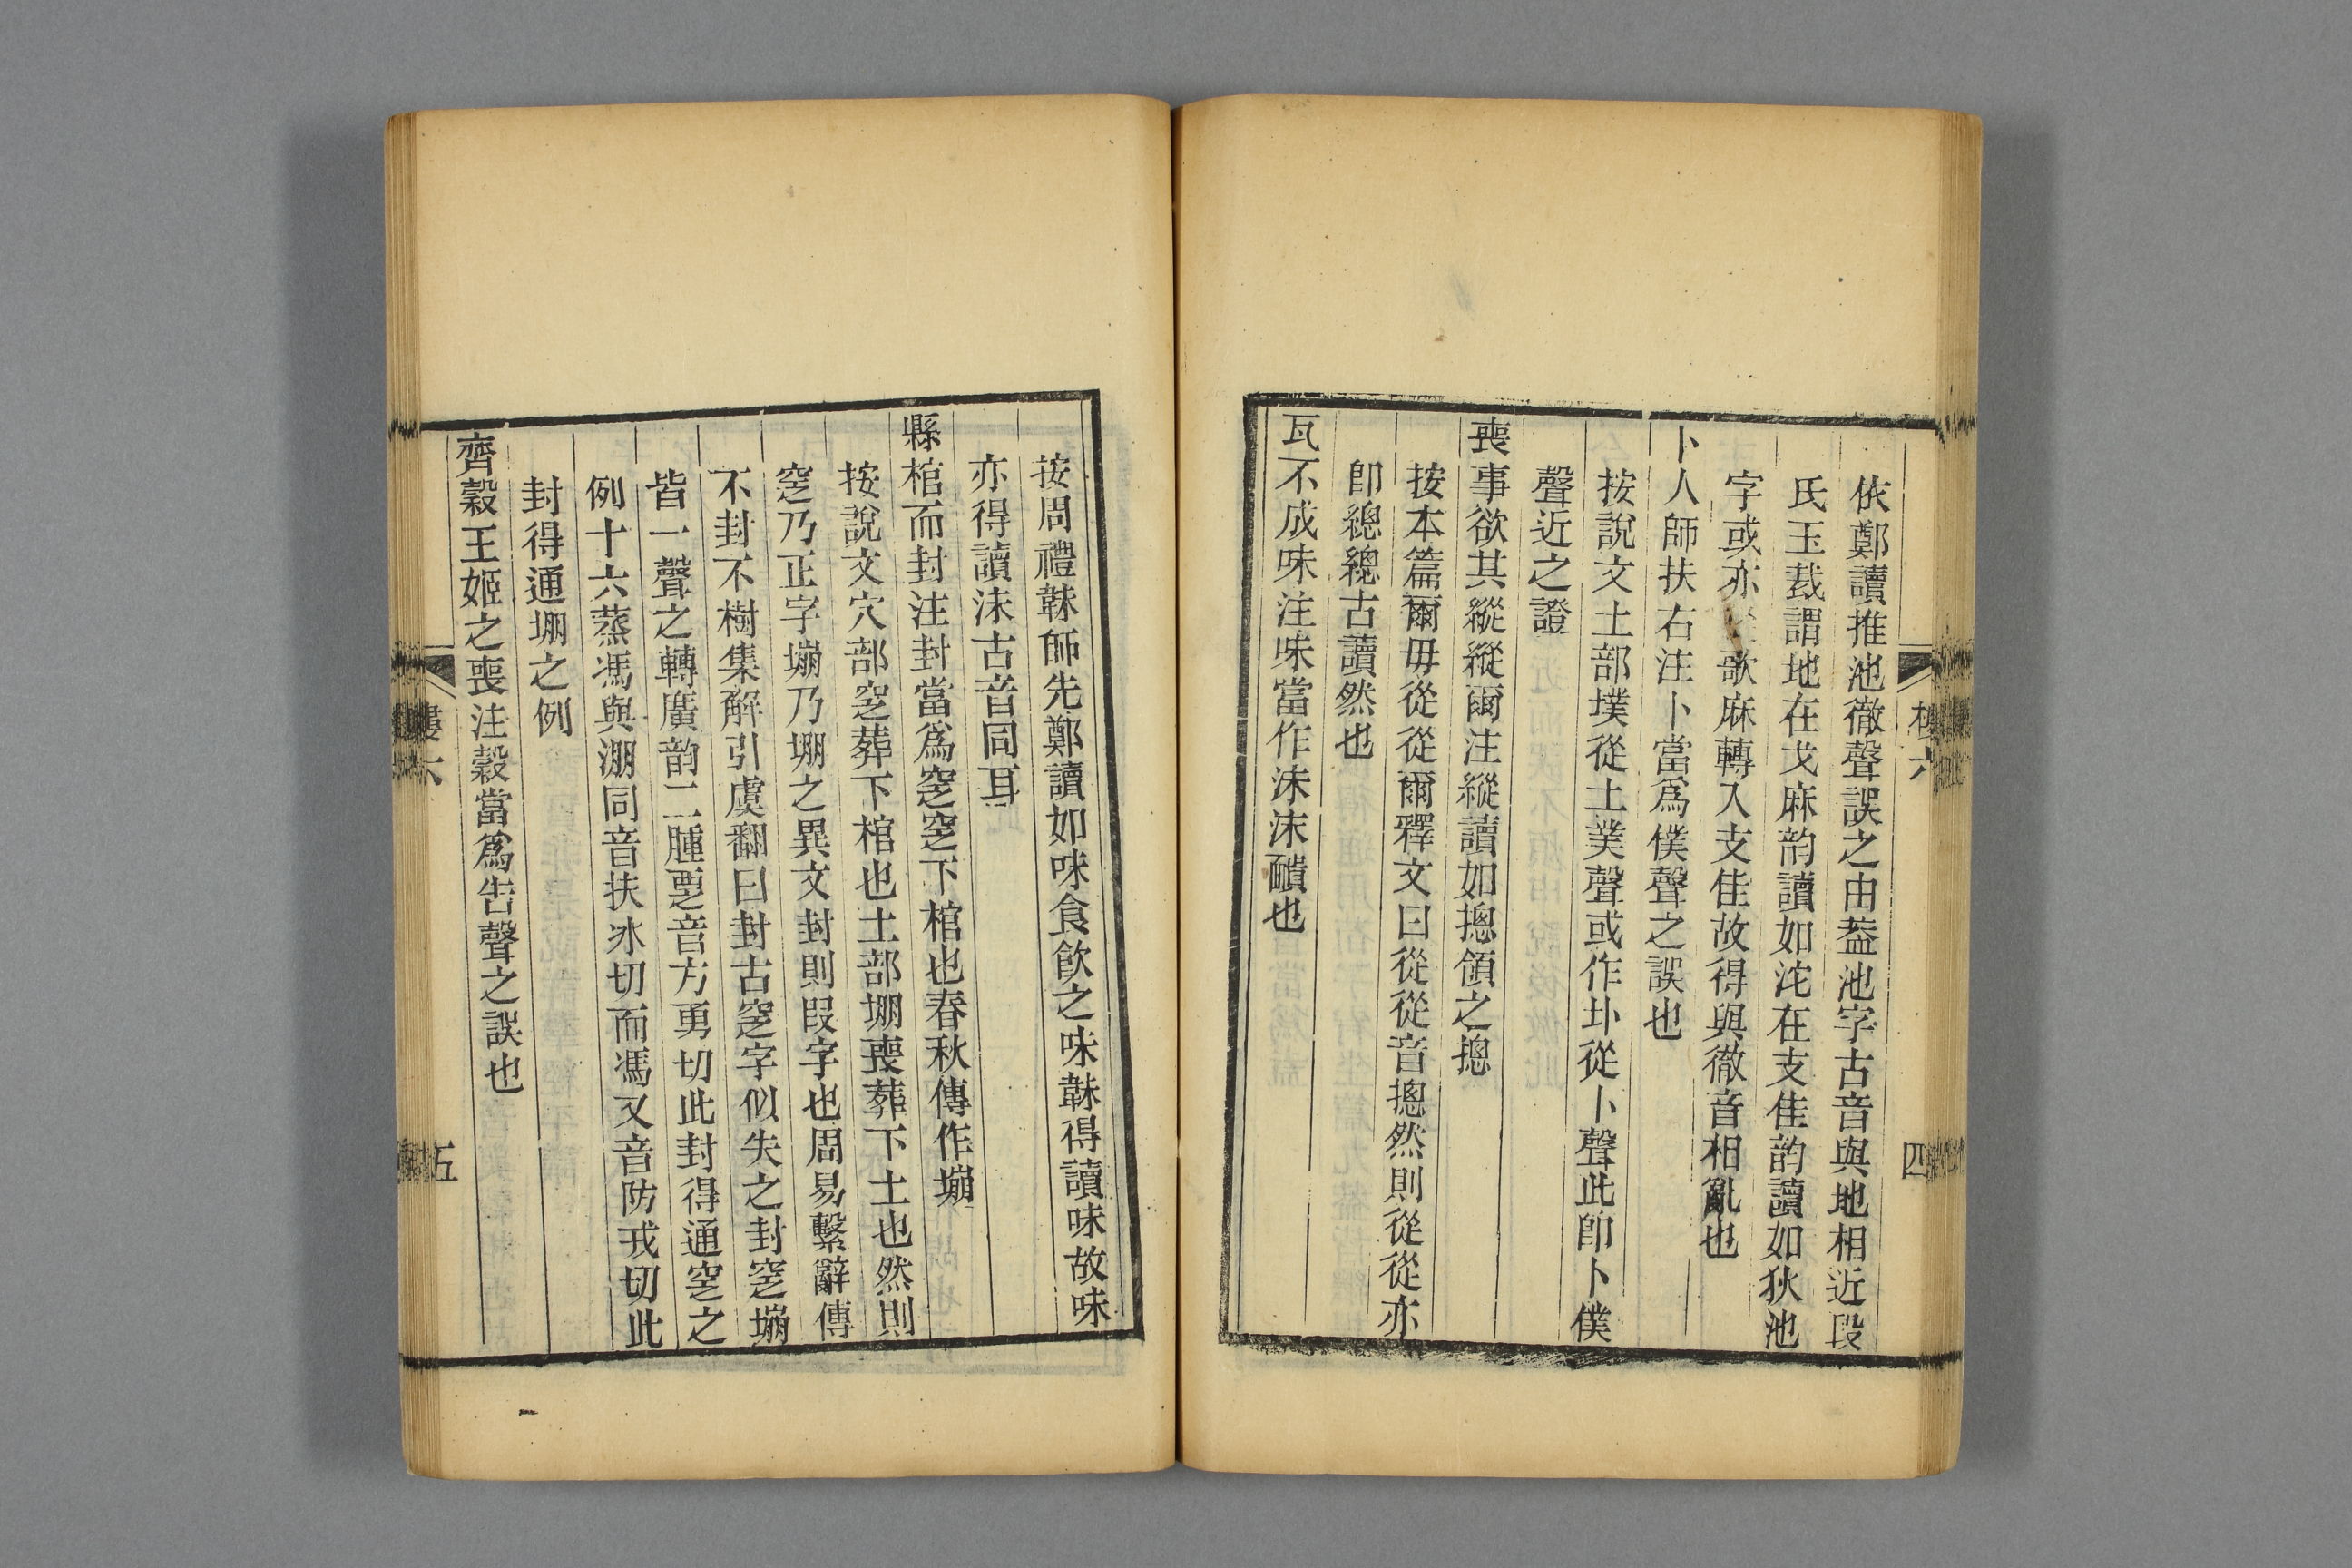 依鄭讀推池徹聲誤之由葢池字古音與地相近段
氏玉裁謂地在戈麻韵讀如沱在支佳韵讀如狄池
字或亦 歌麻轉入支佳故得與徹音相亂也
卜人師扶右注卜當爲僕聲之誤也
按說文土部墣從土菐聲或作圤從卜聲此卽卜僕
聲近之證
喪事欲其縱縱爾注縱讀如摠領之摠
按本篇爾毋從從爾釋文曰從從音摠然則從從亦
卽總總古讀然也
瓦不成味注味當作沬沬靧也
四
按周禮韎師先鄭讀如味食飮之味韎得讀味故味
亦得讀沬古音同耳
縣棺而封注封當爲窆窆下棺也春秋傳作塴
按說文穴部窆葬下棺也土部堋喪葬下土也然則
窆乃正字塴乃堋之異文封則叚字也周易繫辭傳
不封不樹集解引虞翻曰封古窆字似失之封窆塴
皆一聲之轉廣韵二腫覂音方勇切此封得通窆之
例十六蒸馮與淜同音扶冰切而馮又音防戎切此
封得通堋之例
齊穀王姬之喪注穀當爲告聲之誤也
樓六
五